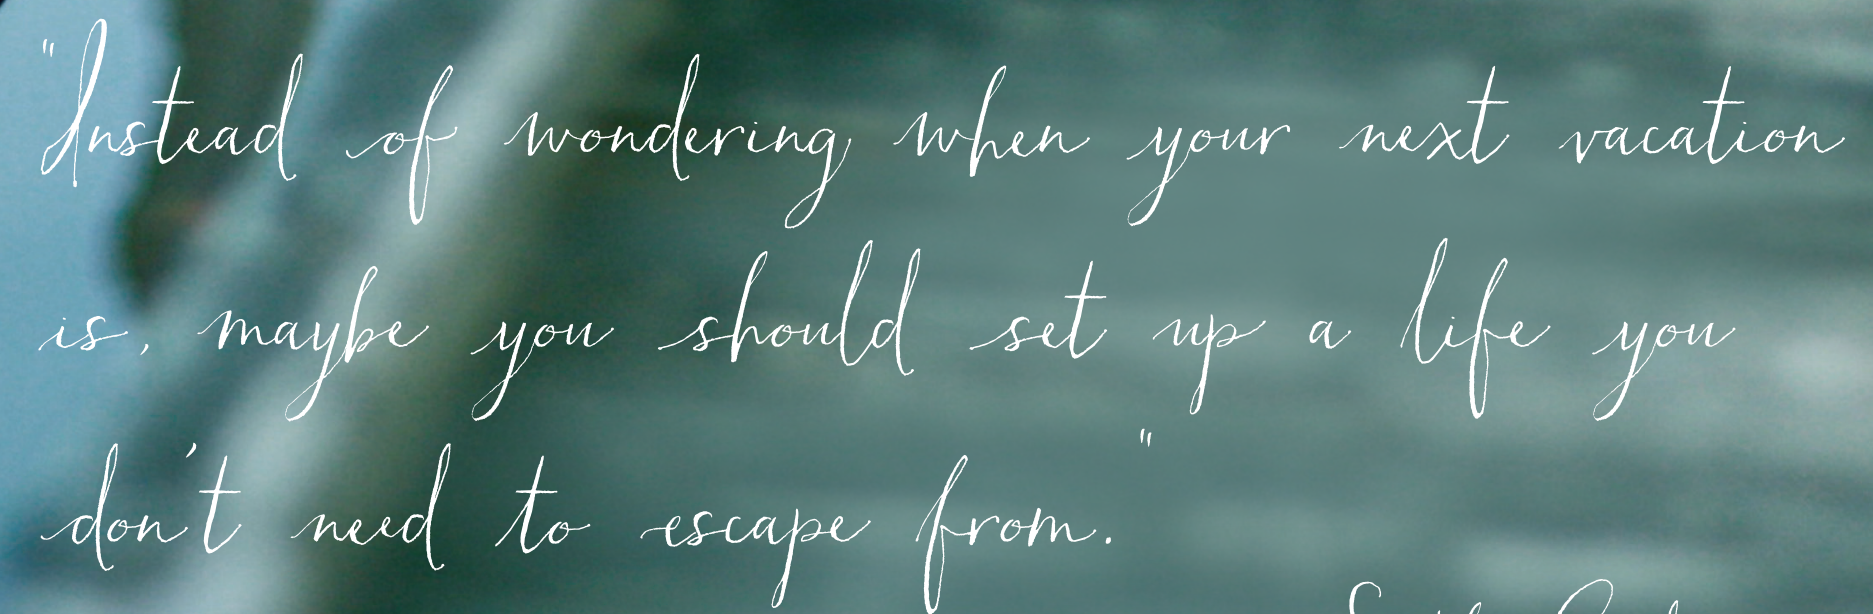 "Instead of wondering when your next vacation
is, maybe you should set up a life you
don't need to escape from."